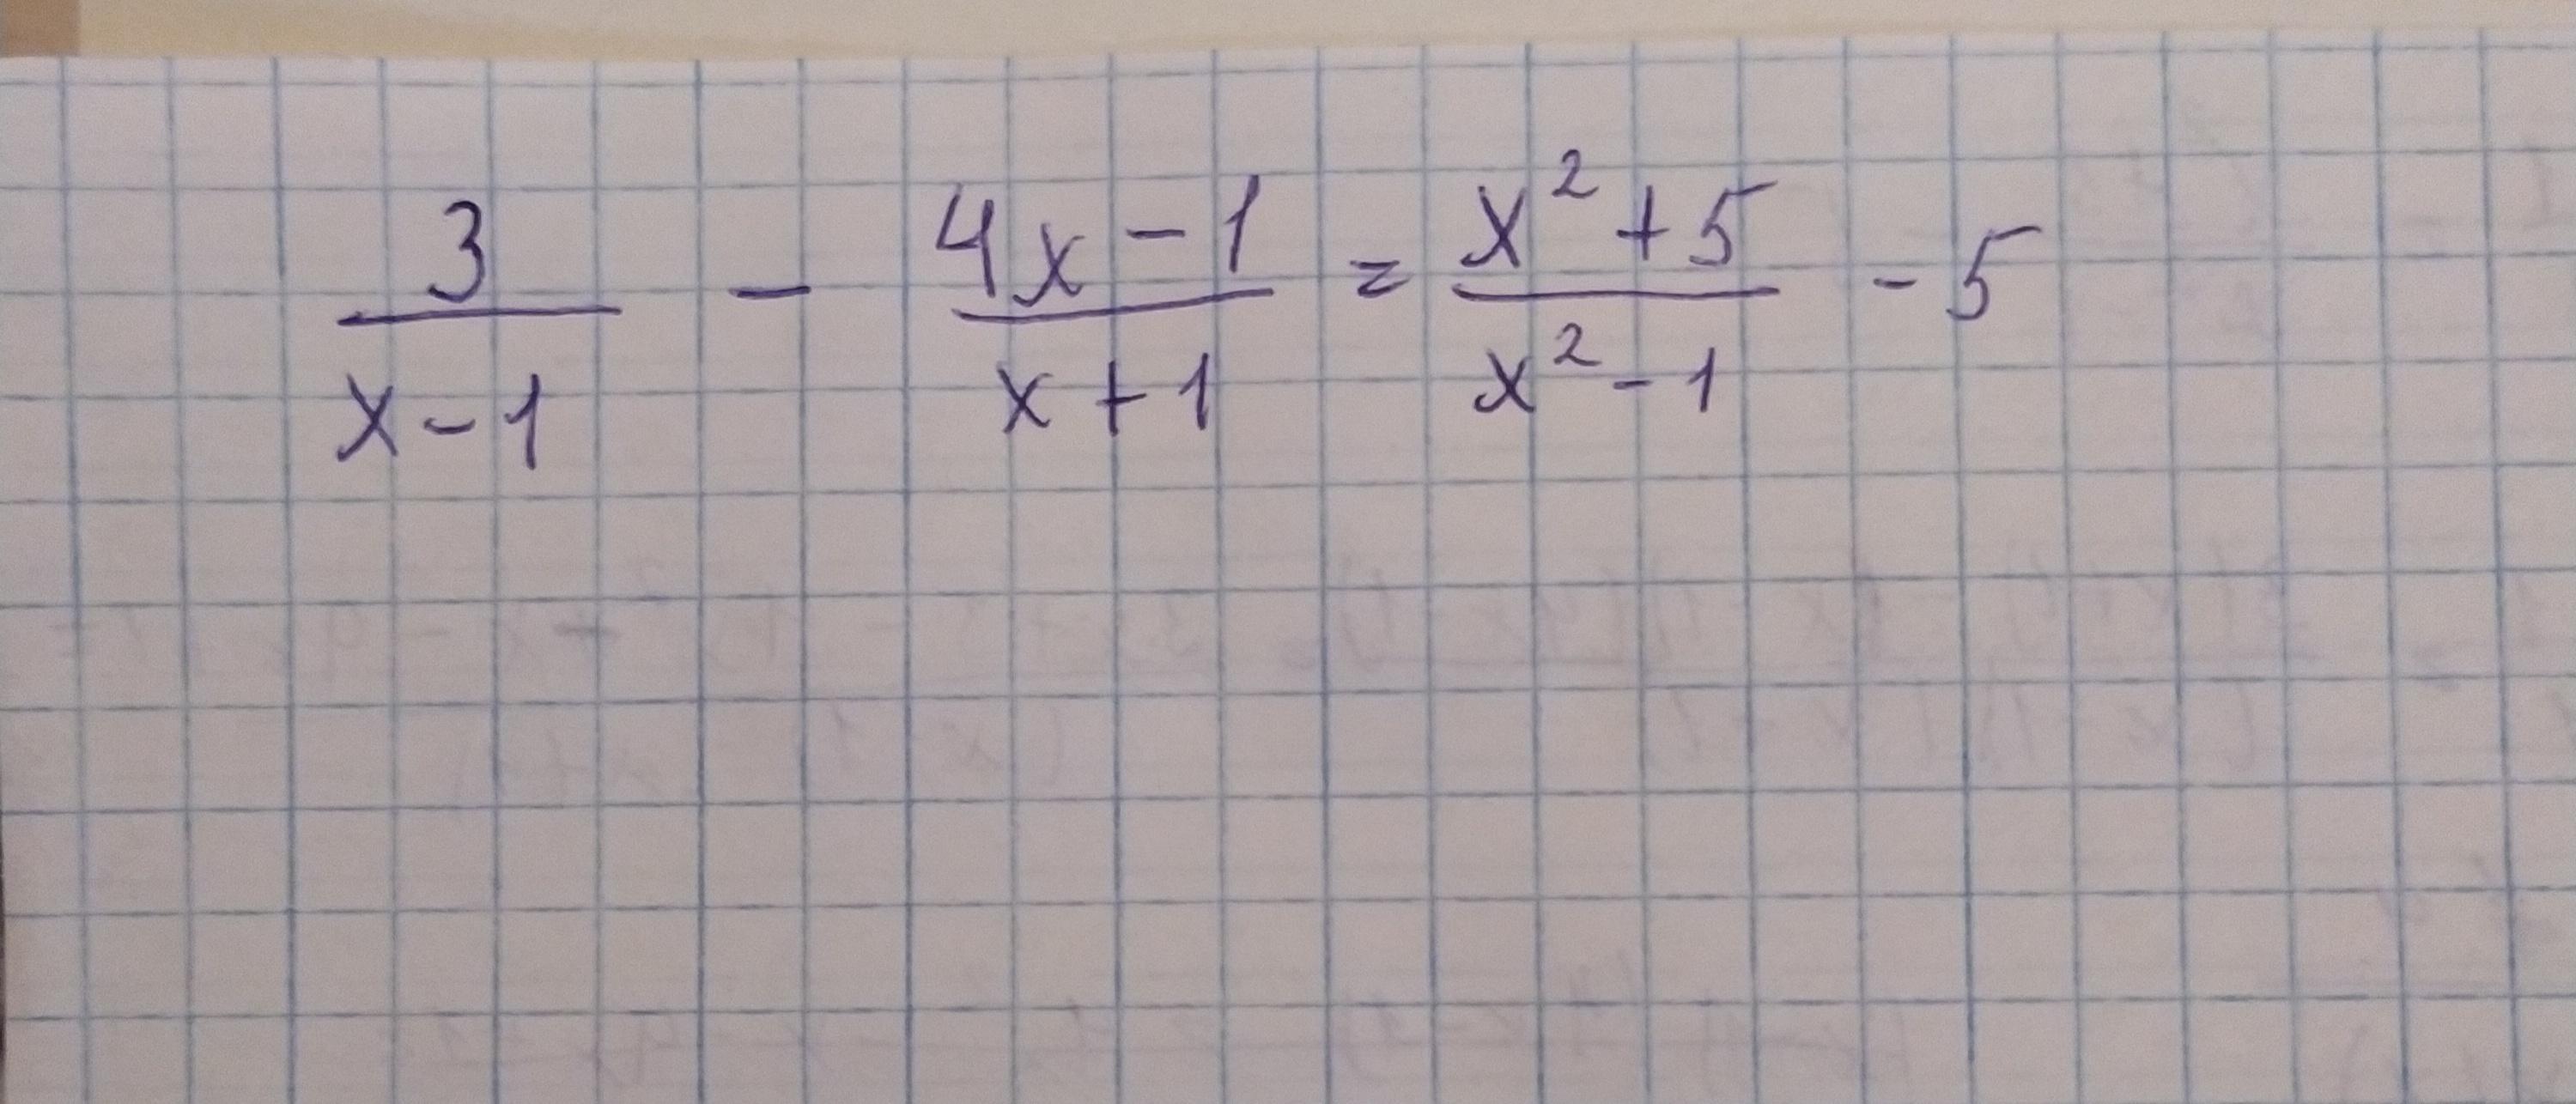 3/(x-1) - (4x-1)/(x+1) = (x²+5)/(x²-1) - 5